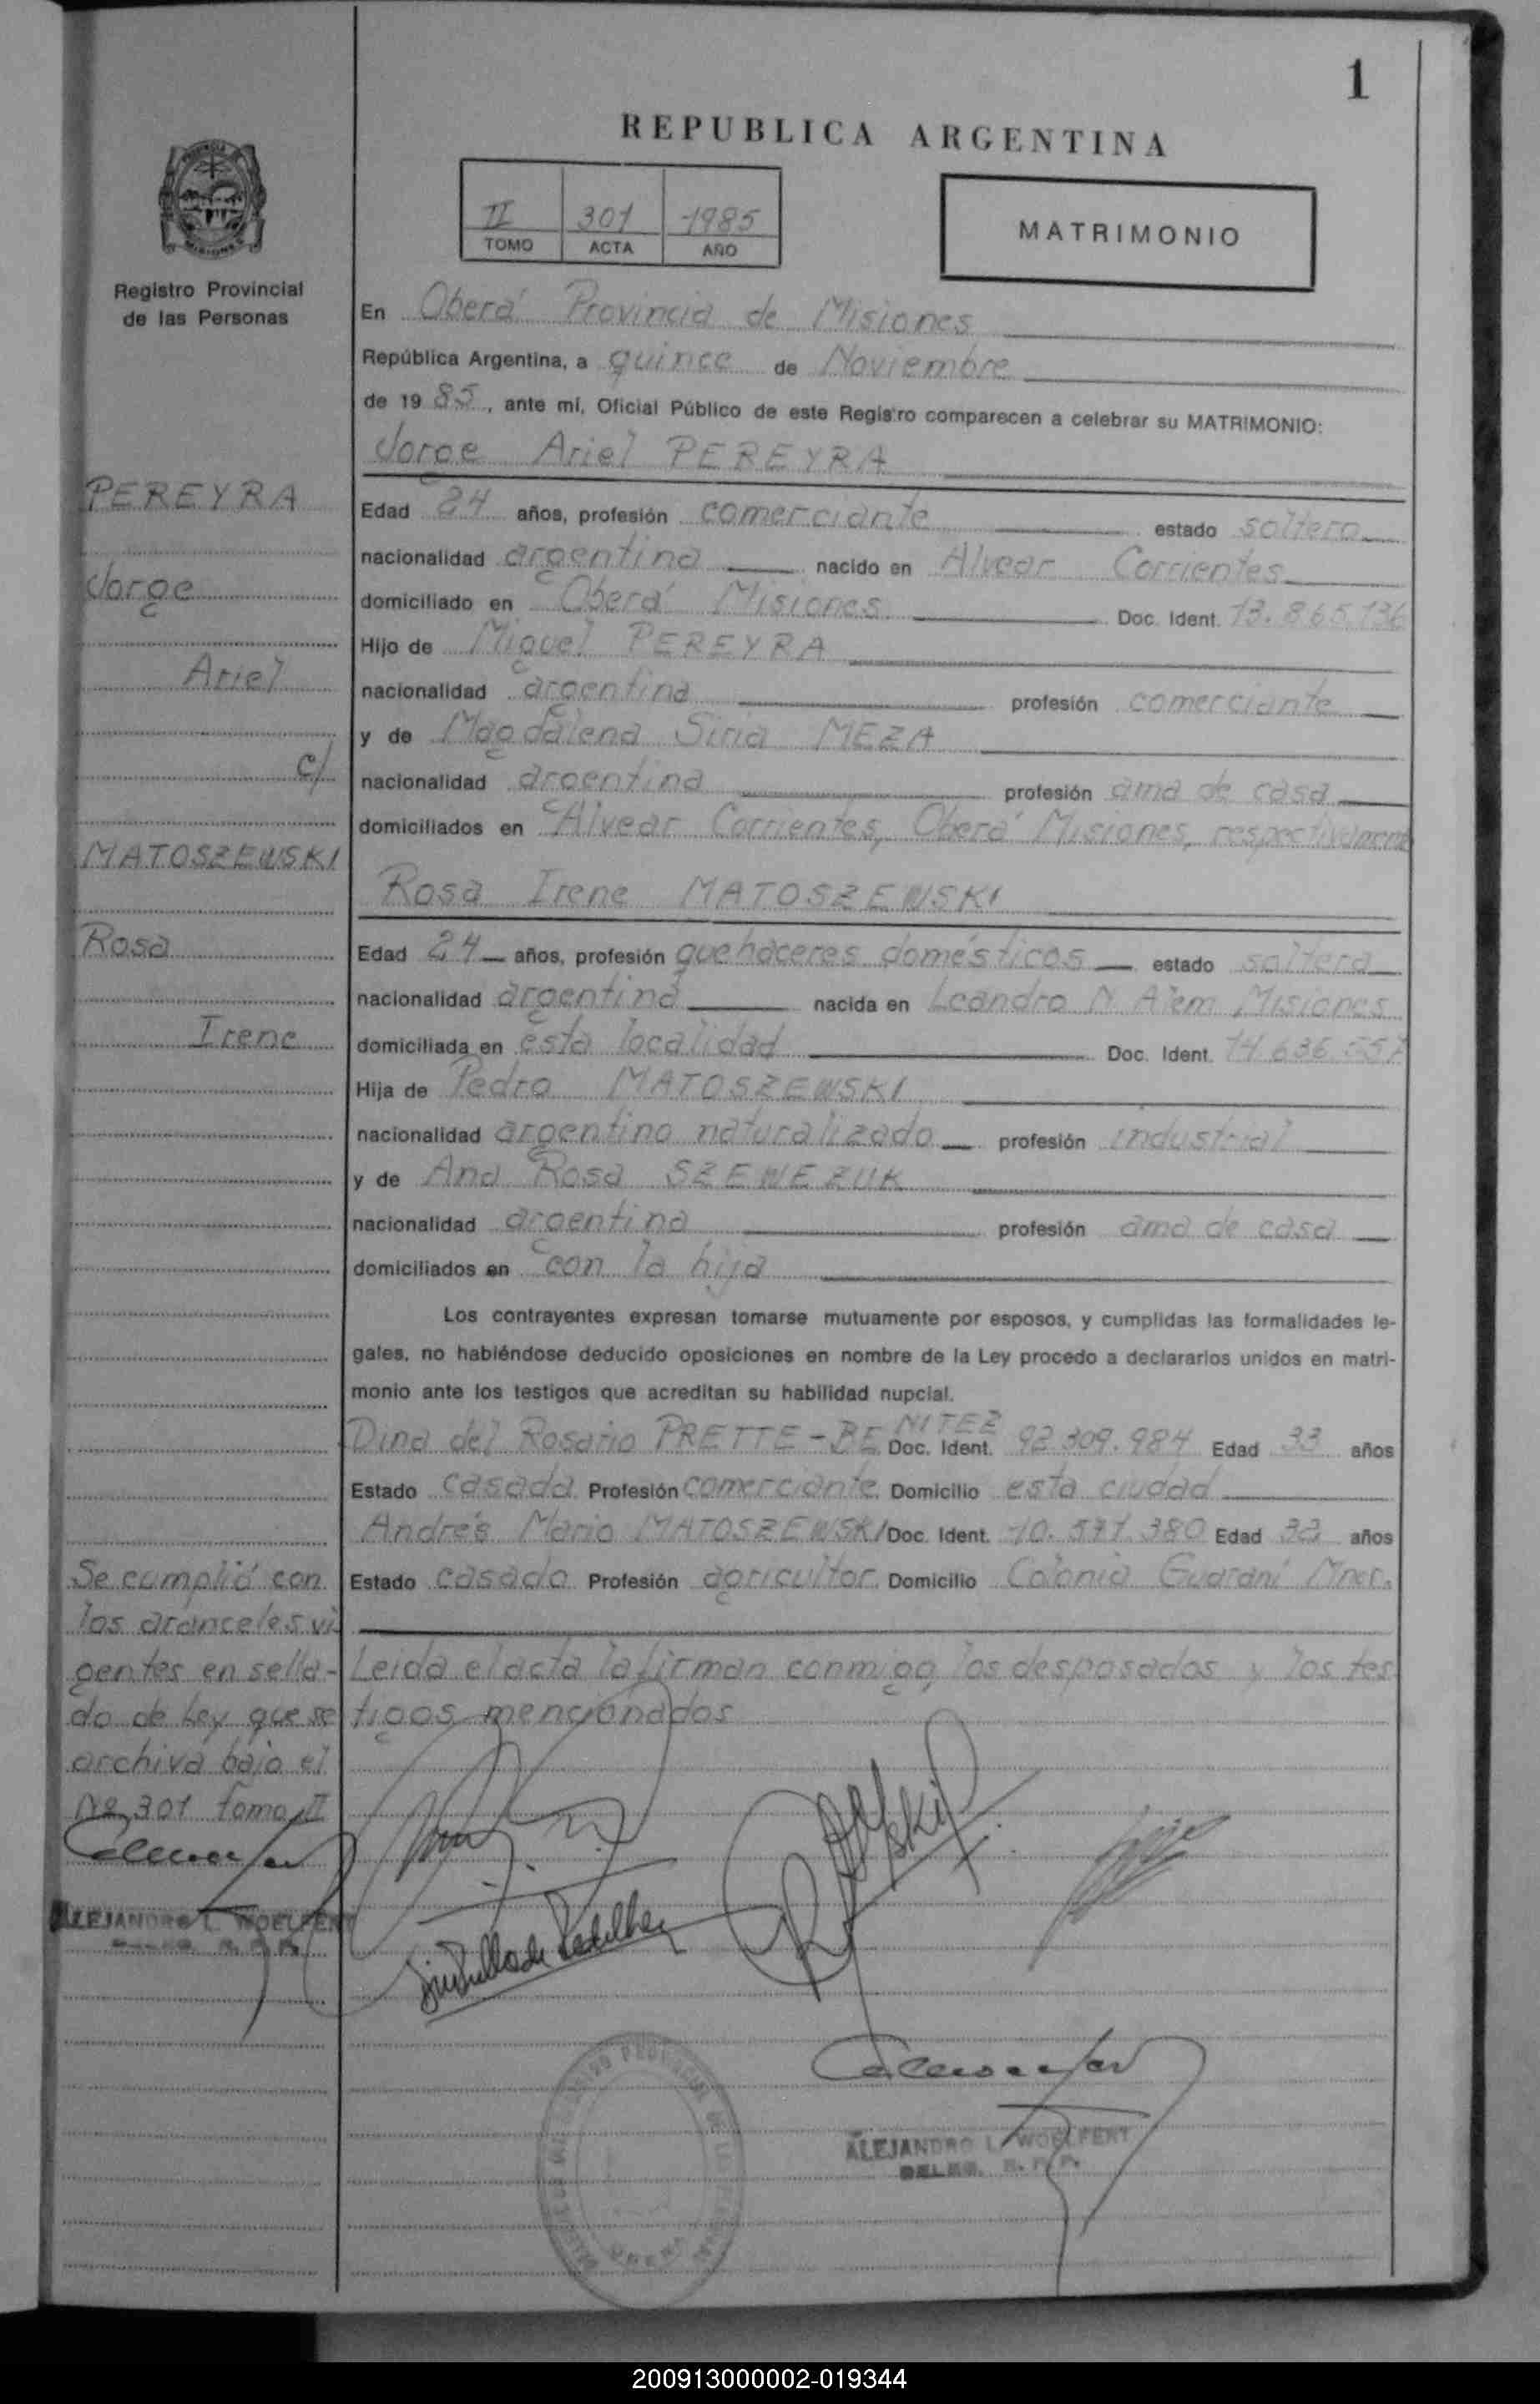 1
REPUBLICA ARGENTINA
II 301 1985
TOMO ACTA AÑO
MATRIMONIO
Registro Provincial
de las Personas
En Oberá Provincia de Misiones
República Argentina, a quince de Noviembre
de 1985, ante mí, Oficial Público de este Registro comparecen a celebrar su MATRIMONIO:
Jorge Ariel PEREYRA
Edad 24 años, profesión comerciante estado soltero
nacionalidad argentina nacido en Alvear Corrientes
domiciliado en Oberá Misiones Doc. Ident. 13.865.136
Hijo de Miguel PEREYRA
nacionalidad argentina profesión comerciante
y de Magdalena Siria MEZA
nacionalidad argentina profesión ama de casa
domiciliados en Alvear Corrientes, Oberá Misiones, respectivament
Rosa Irene MATOSZEWSKI
Edad 24 años, profesión quehaceres domésticos estado soltera
nacionalidad argentina nacida en Leandro N. Alem Misiones
domiciliada en esta localidad Doc. Ident. 14.636.557
Hija de Pedro MATOSZEWSKI
nacionalidad argentino naturalizado profesión industrial
y de Ana Rosa SZEWEZUK
nacionalidad argentina profesión ama de casa
domiciliados en con la hija
Los contrayentes expresan tomarse mutuamente por esposos, y cumplidas las formalidades le-
gales, no habiéndose deducido oposiciones en nombre de la Ley procedo a declararlos unidos en matri-
monio ante los testigos que acreditan su habilidad nupcial.
Dina del Rosario PRETTE-BENITEZ Doc. Ident. 92.309.984 Edad 33 años
Estado casada Profesión comerciante Domicilio esta ciudad
Andrés Mario MATOSZEWSKI Doc. Ident. 10.571.380 Edad 32 años
Estado casado Profesión agricultor Domicilio Colonia Guaraní Mnes.
Leida el acta la firman conmigo, los desposados y los tes
tigos mencionados
PEREYRA
Jorge
Ariel
c/
MATOSZEWSKI
Rosa
Irene
Se cumplió con
los aranceles vi
gentes en sella-
do de Ley que se
archiva bajo el
Nº 301 tomo II
ALEJANDRO L. WOELFERT
ALEJANDRO L. WOELFERT
DELEG. R. P. P.
OBERA
200913000002-019344